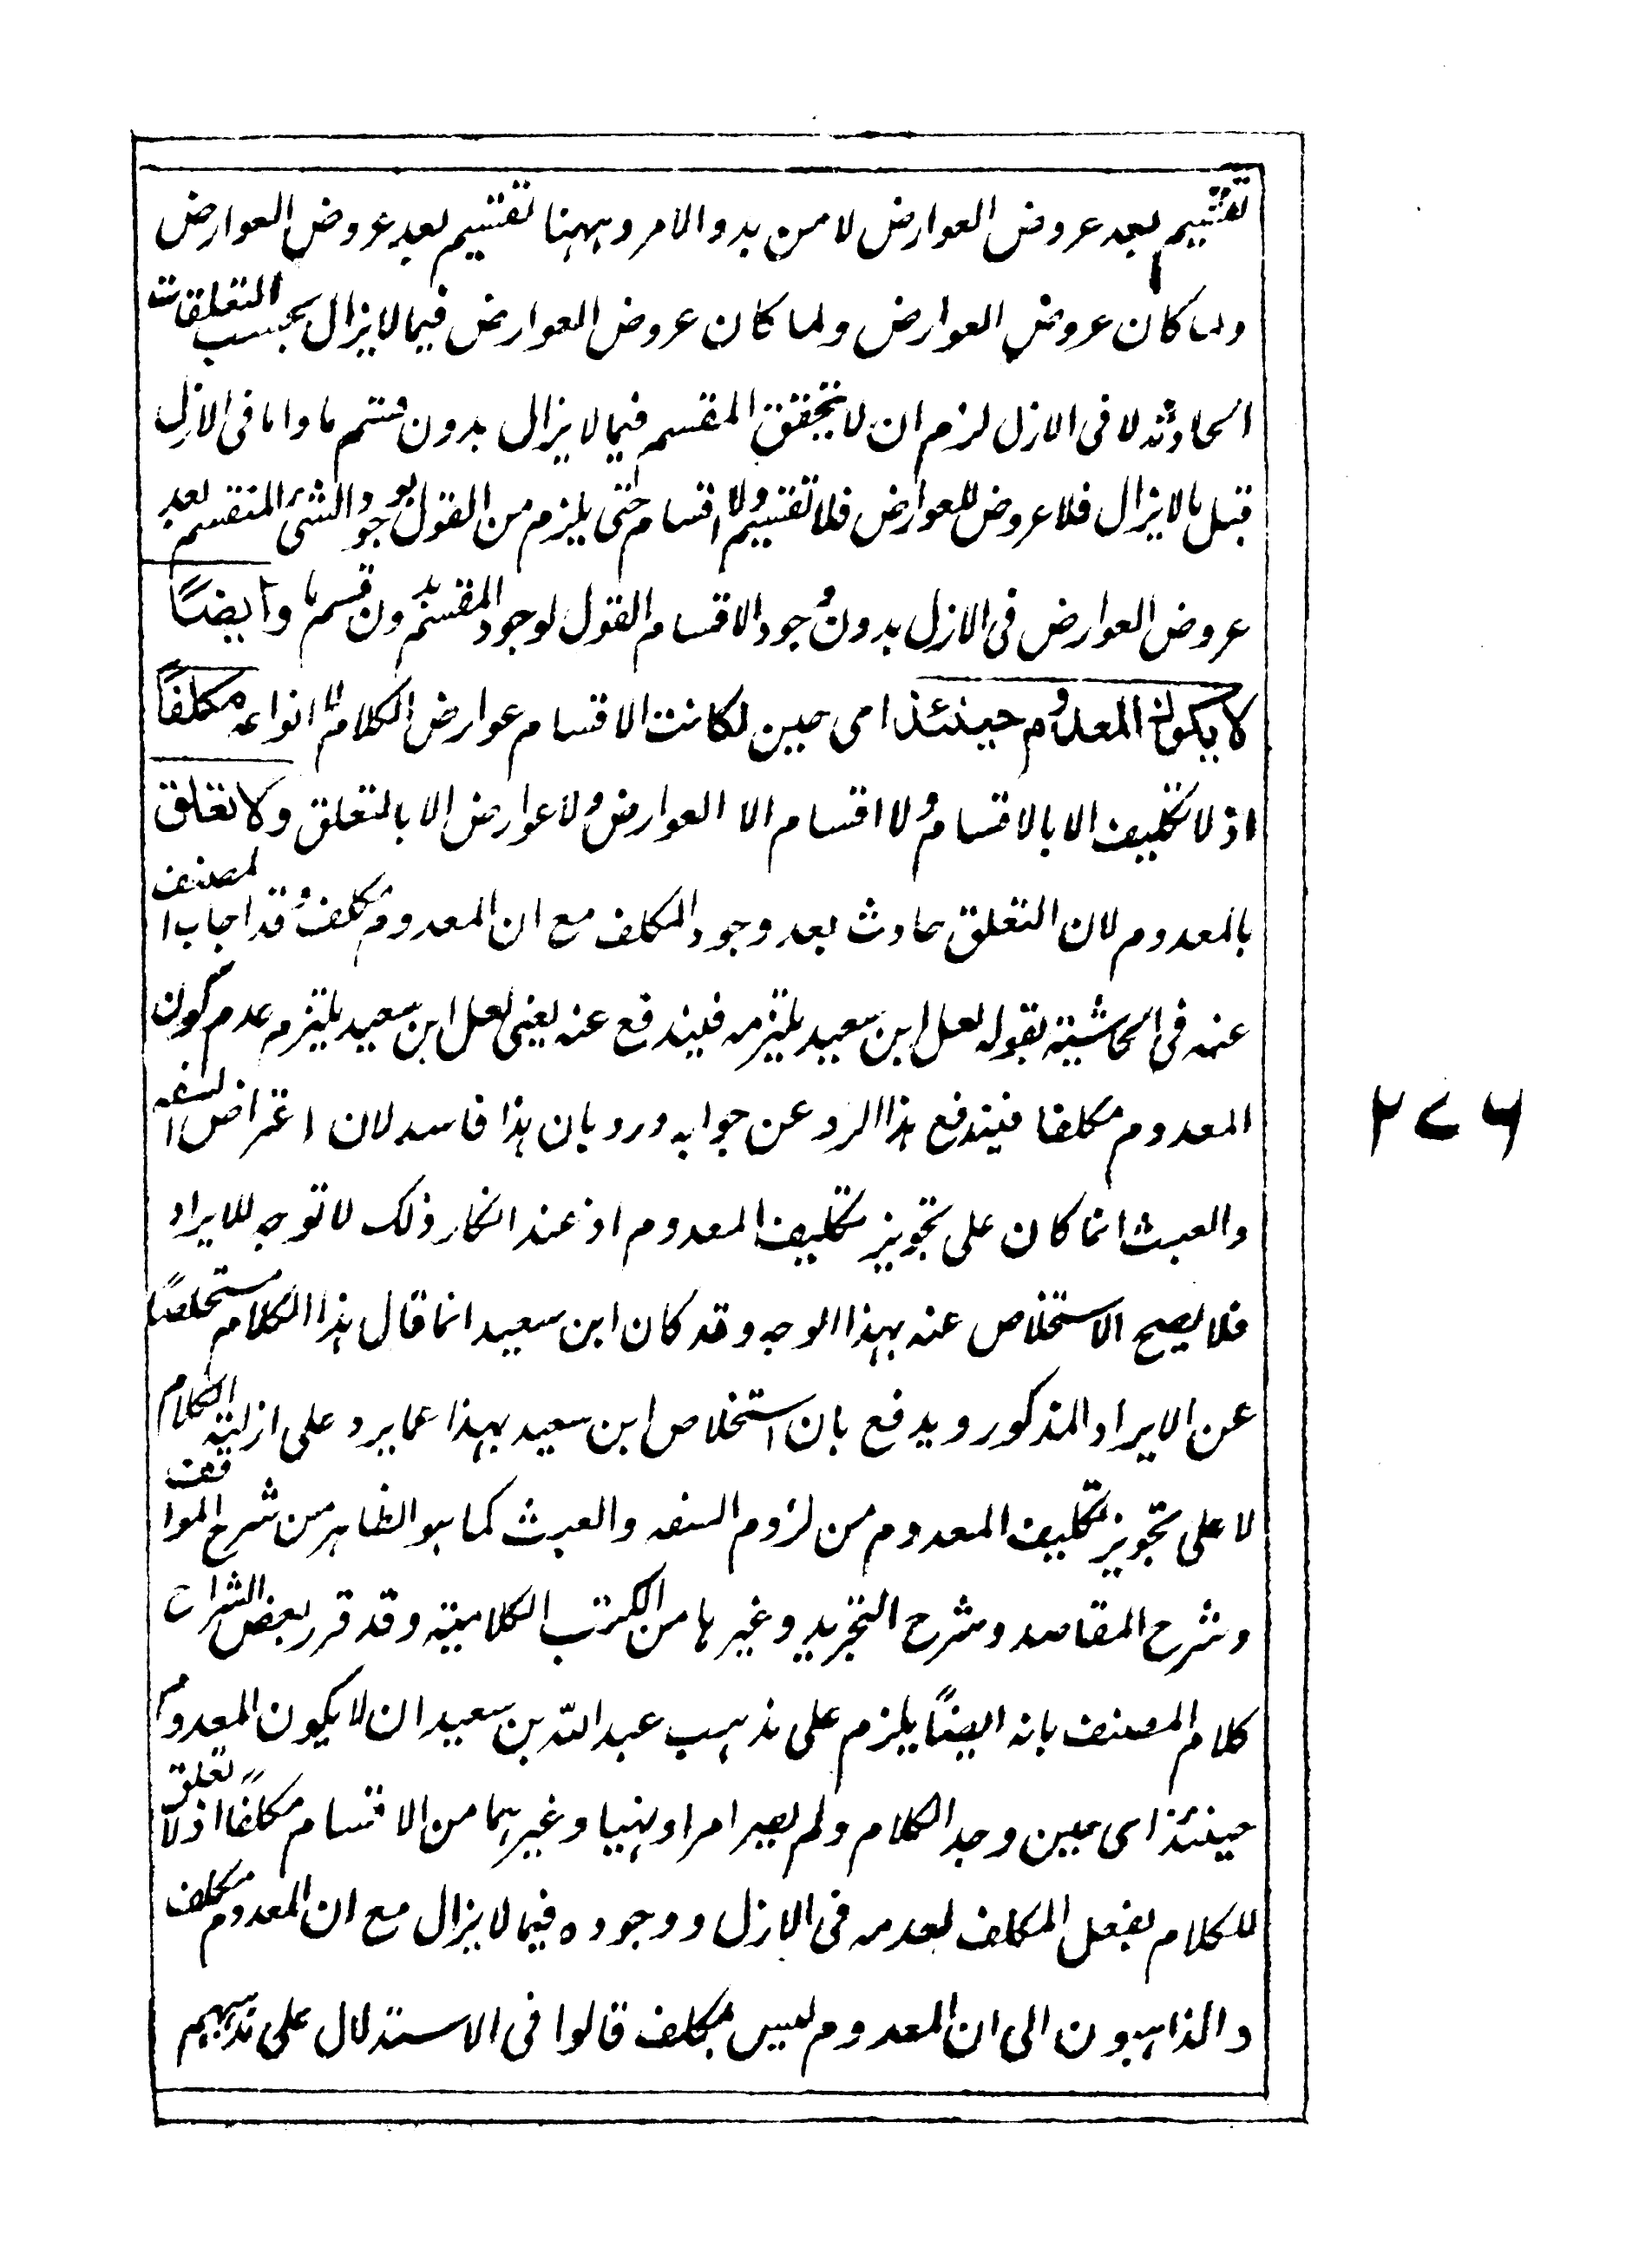 تقسيم بعد عروض العوارض لا من بدو الامر وههنا تقسيم بعد عروض العوارض
ولما كان عروض العوارض ولما كان عروض العوارض فيما لا يزال بحسب التعلقات
الحادثه لا فى الازل لزم ان لا يتحقق المقسم فيما لا يزال بدون قسم ما واما فى الازل
قبل ما لا يزال فلا عروض للعوارض فلا تقسيم ولا اقسام حتى يلزم من القول بوجود الشئ المنقسم بعد
عروض العوارض فى الازل بدون وجود الاقسام القول لوجود المقسم بدون قسم ما وايضاً
لا يكون المعدوم حينئذ اى حين لكانت الاقسام عوارض الكلام لا انواعه مكلفاً
اذ لا تكليف الا بالاقسام ولا اقسام الا العوارض ولا عوارض الا بالتعلق ولا تعلق
بالمعدوم لان التعلق حادث بعد وجود المكلف مع ان المعدوم مكلف وقد اجاب المصنف
عنه فى الحاشية بقوله لعل ابن سعيد يلتزمه فيندفع عنه يعنى لعل ابن سعيد يلتزم عدم كون
المعدوم مكلفا فيندفع هذا الرد عن جوابه ورد بان هذا فاسد لان اعتراض السفه
والعبث انما كان على تجويز تكليف المعدوم اذ عند انكار ذلك لا توجه للايراد
فلا يصح الاستخلاص عنه بهذا الوجه وقد كان ابن سعيد انما قال هذا الكلام مستخلصاً
عن الايراد المذكور ويدفع بان استخلاص ابن سعيد بهذا عما يرد على ازلية الكلام
لا على تجويز تكليف المعدوم من لزوم السفه والعبث كما هو الظاهر من شرح المواقف
وشرح المقاصد وشرح التجريد وغيرها من الكتب الكلامية وقد قرر بعض الشراح
كلام المصنف بانه ايضاً يلزم على مذهب عبد الله بن سعيد ان لا يكون المعدوم
حينئذ اى حين وجد الكلام ولم يصر امرا ونهيا وغيرهما من الاقسام مكلفاً اذ لا تعلق
للكلام بفعل المكلف لعدمه فى الازل ووجوده فيما لا يزال مع ان المعدوم مكلف
والذاهبون الى ان المعدوم ليس بمكلف قالوا فى الاستدلال على مذهبهم
٢٧٦